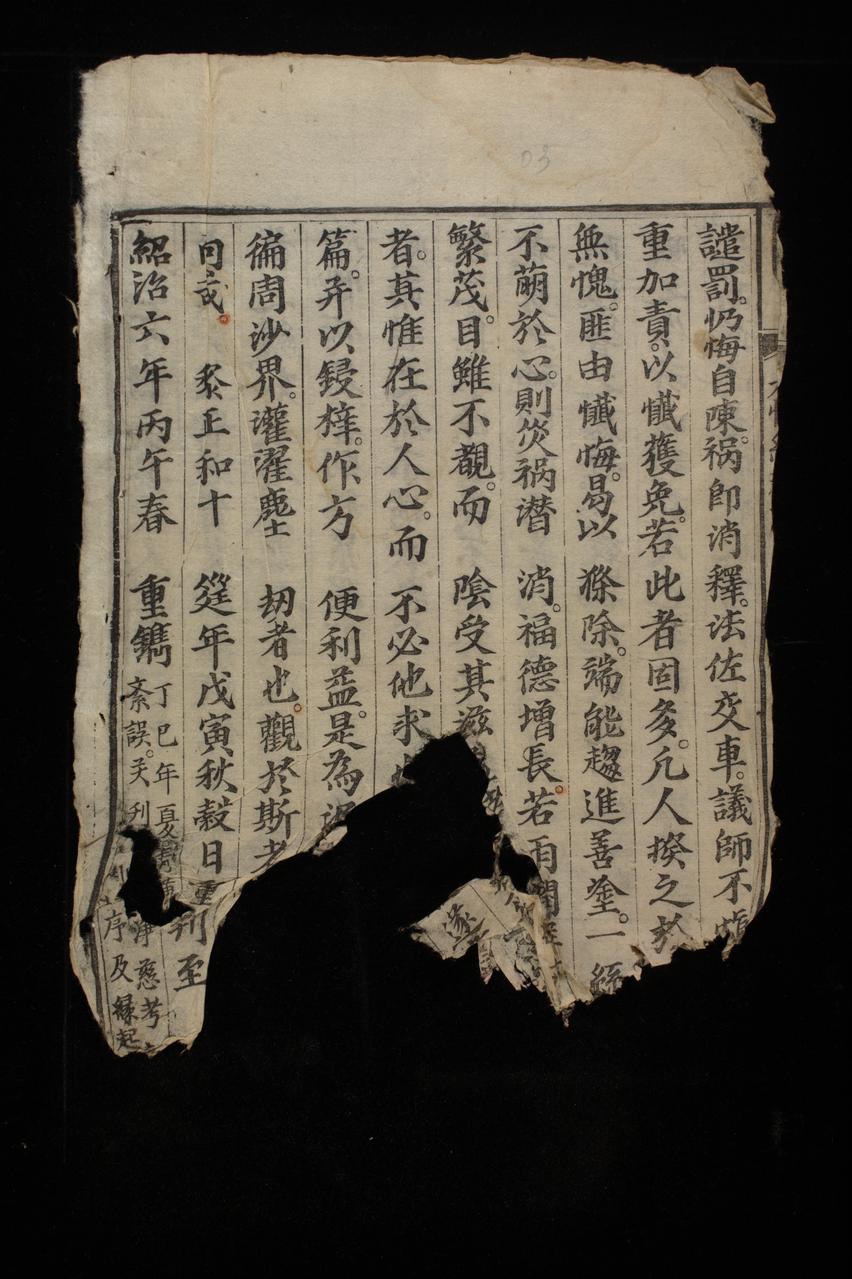 譴罰。仍悔自陳。禍即消釋。法佐交車。議師不
重加責。以懺獲免。若此者固多。凢人揆之於
無愧。匪由懺悔。曷以滌除。端能趨進善塗。一
不萌於心。則災禍潜消。福德增長。若雨潤
繁茂。目雖不覩。而陰受其滋
者。其惟在於人心。而不必他求
篇。弁以鋟梓。作方便利益。是為
徧周沙界。灌濯塵劫者也。觀於斯者
同
正和十筵年戊寅秋穀日重刊至
紹治六年丙午春重鐫
丁巳年夏
淨慈考
紊誤。
刊
序及緣起
遂
03